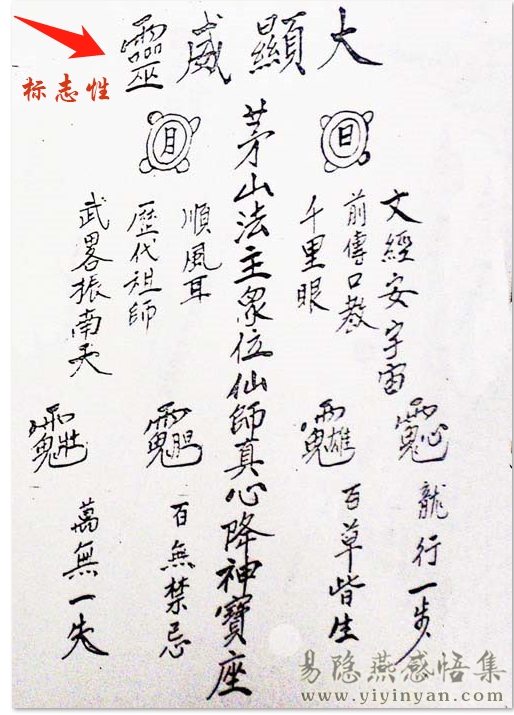 大顯威靈
标志性
日
月
文經安宇宙
前傳口教
千里眼
茅山法主眾位仙師真心降神寶座
順風耳
歷代祖師
武畧振南天
龍行一步
百草皆生
百無禁忌
萬無一失
易隐燕感悟集
www.yiyinyan.com